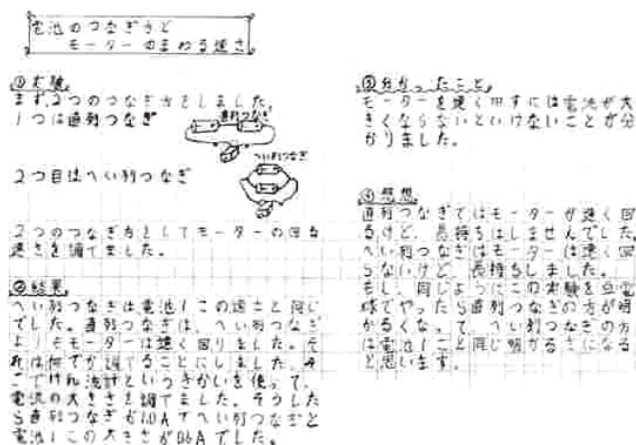 電池のつなぎ方と
モーターのまわる速さ
①実験
まず、2つのつなぎ方をしました。
1つは直列つなぎ
直列つなぎ
2つ目はへい列つなぎ
へい列つなぎ
2つのつなぎ方をしてモーターの回る
速さを調べました。
②結果
へい列つなぎは電池1この速さと同じ
でした。直列つなぎは、へい列つなぎ
よりモーターは速く回りました。そ
れは何でか調べることにしました。そ
こでけん流計というきかいを使って、
電流の大きさを調べました。そうした
ら直列つなぎが1.0Aでへい列つなぎと
電池1この大きさが0.6Aでした。
③分かったこと
モーターを速く回すには電流が大
きくならないといけないことが分
かりました。
④感想
直列つなぎではモーターが速く回
るけど、長持ちはしませんでした。
へい列つなぎはモーターは速く回
らないけど、長持ちしました。
もし、同じようにこの実験を豆電
球でやったら直列つなぎの方が明
かるくなって、へい列つなぎの方
は電池1こと同じ明かるさになる
と思います。